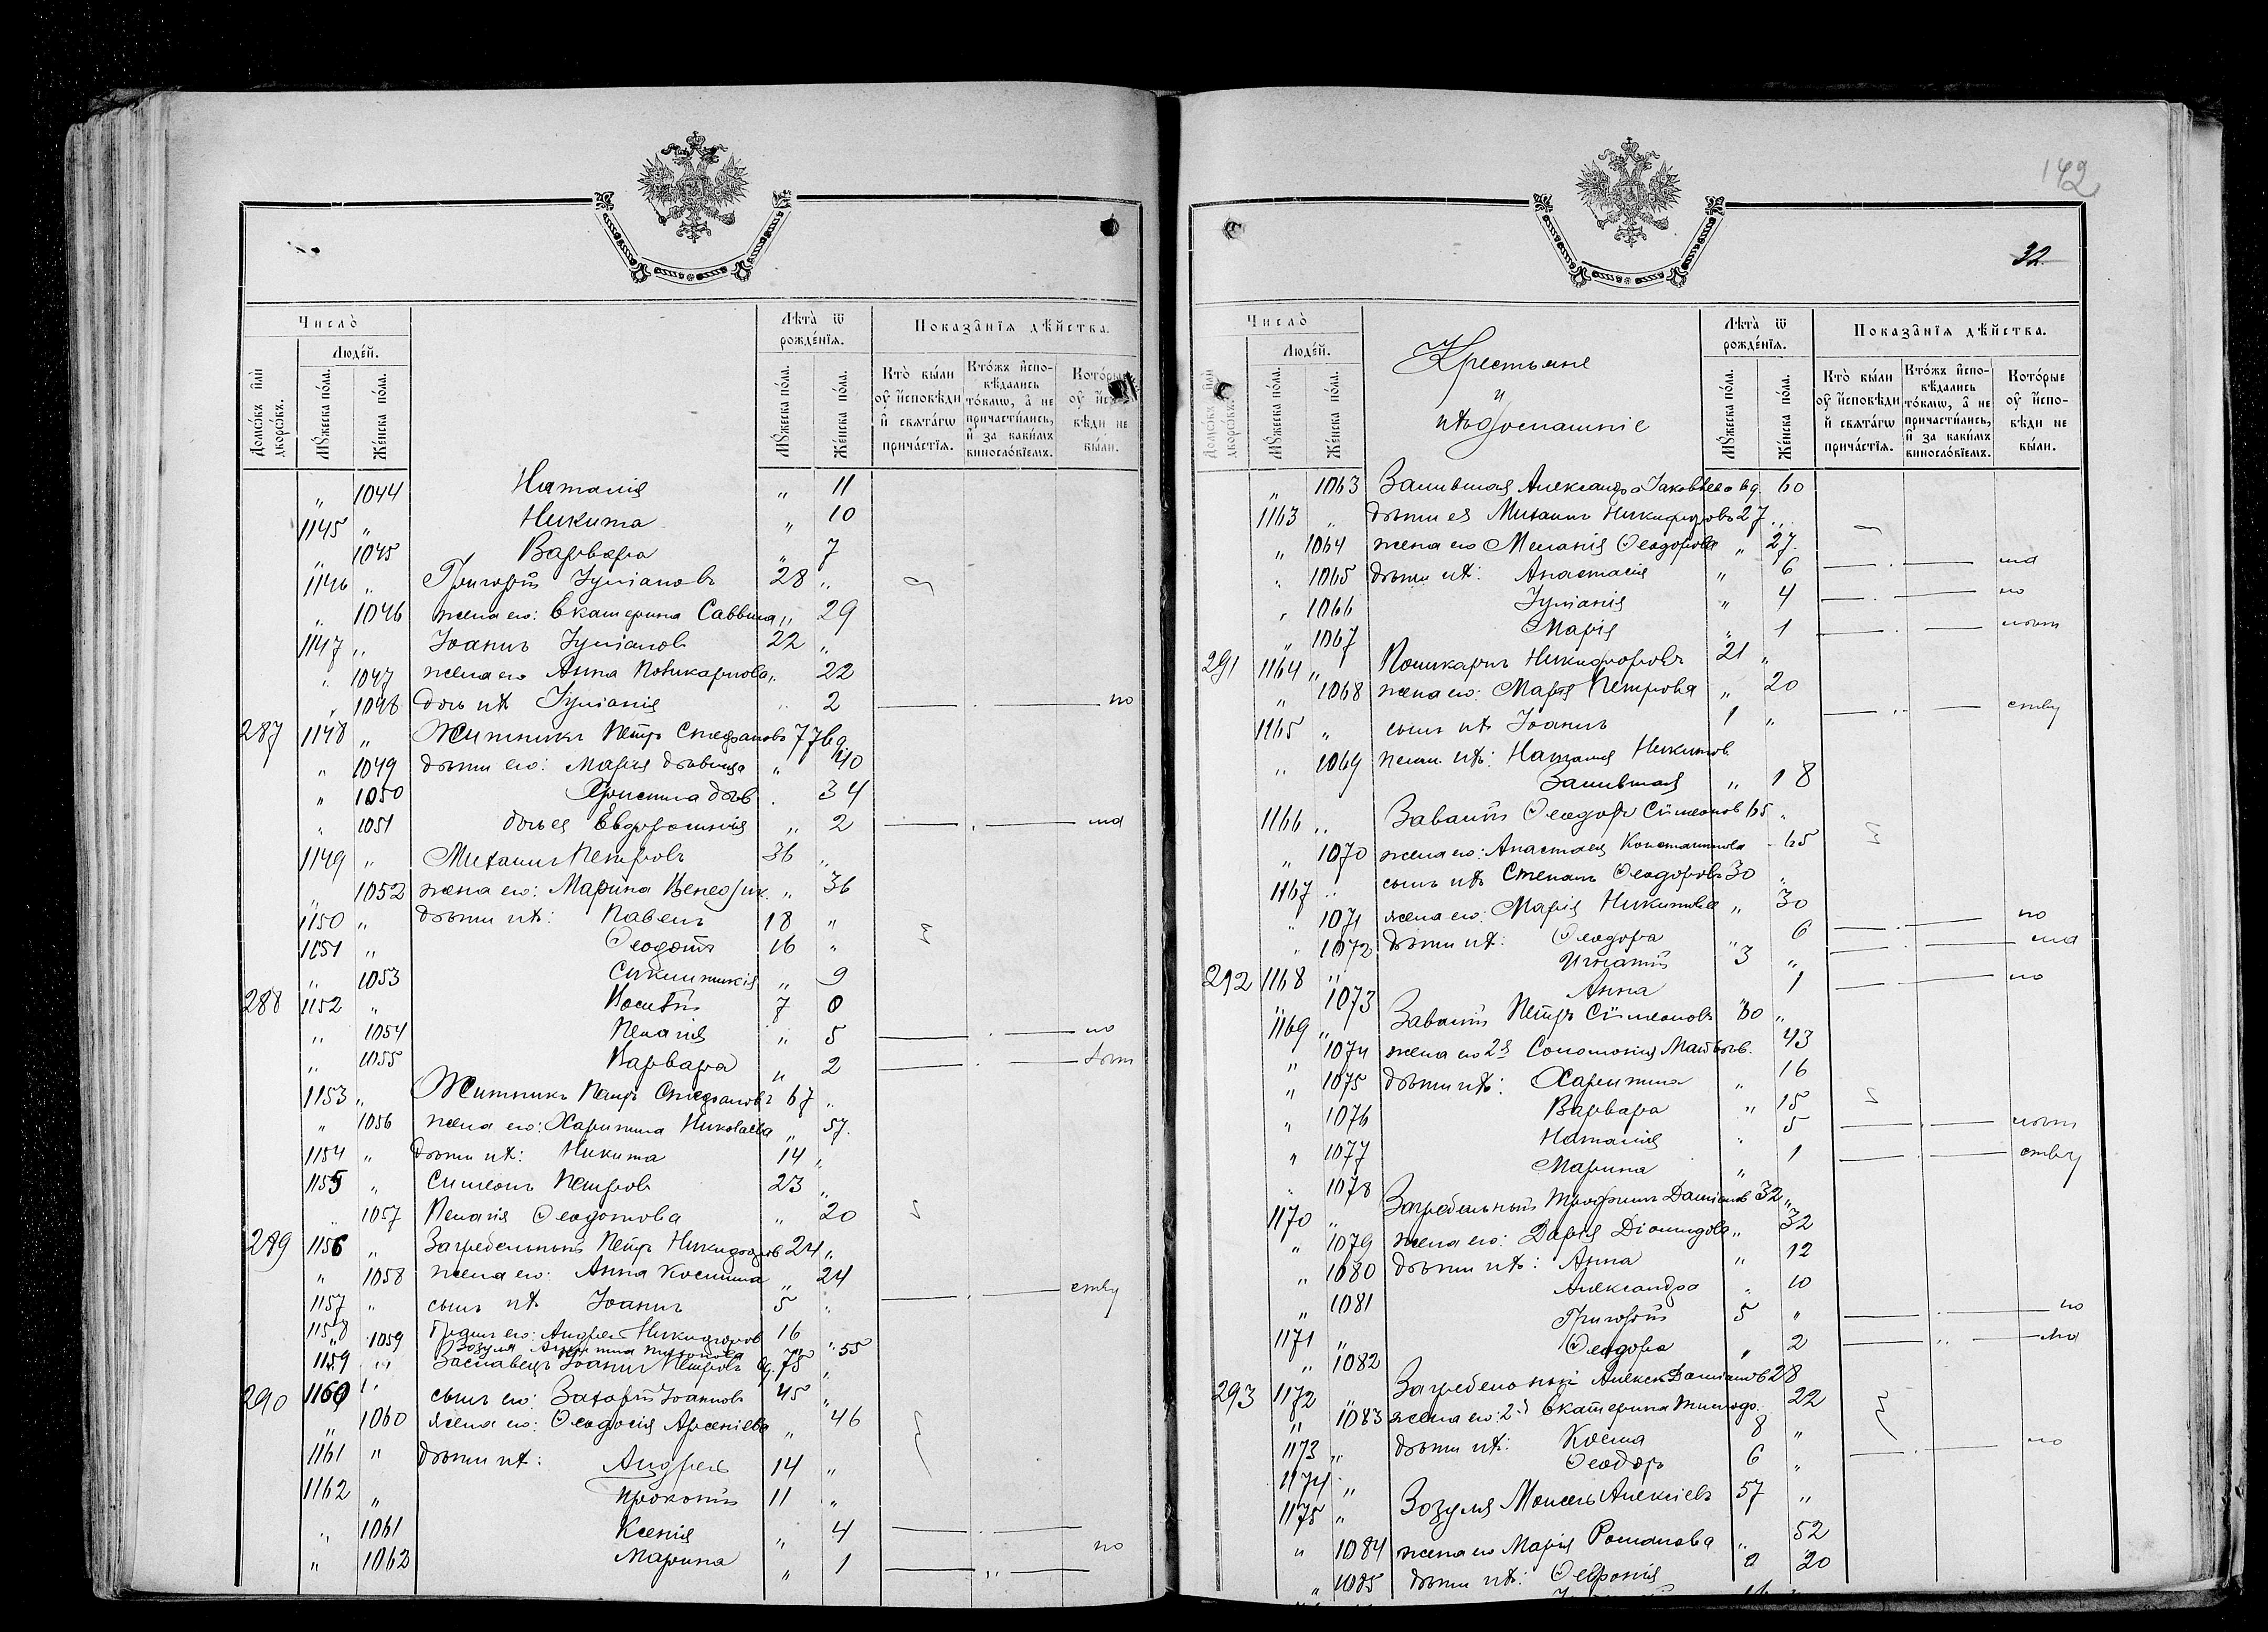 Число̀
Люде́й.
Домо́въ и҆лѝ дворо́въ.
Мꙋ́жеска по́ла.
Же́нска по́ла.
Лѣ́та ѿ рожде́нїѧ.
Мꙋ́жеска по́ла.
Же́нска по́ла.
Показа̑нїѧ дѣ́йства.
Кто̀ бы́ли оу҆ и҆сповѣ́ди и҆ свѧта́гѡ прича́стїѧ.
Кто́жъ и҆сповѣ́дались то́кмѡ, а҆ не причасти́лись, и҆ за каки́мъ винослові́емъ.
Кото́рые оу҆ и҆сповѣ́ди не бы́ли.
„ 1044 Наталія „ 11
1145 „ Никита „ 10
„ 1045 Варвара „ 7
1146 „ Григорій Іуліановъ 28 „
„ 1046 жена его: Екатерина Саввина „ 29
1147 „ Іоаннъ Іуліановъ 22 „
„ 1047 жена его Анна Поликарпова „ 22
„ 1048 дочь ихъ Іуліанія „ 2 по
287 1148 „ Житникъ Петръ Стефановъ 77 вд
„ 1049 дѣти его: Марія дѣвица „ 40
„ 1050 Христина дѣв 34
„ 1051 дочь ея Евфросинія „ 2 ма
1149 „ Михаилъ Петровъ 36 „
„ 1052 жена его: Марина Венедик. „ 36
1150 „ дѣти ихъ: Павелъ 18 „
1151 „ Ѳеодотъ 16 „
„ 1053 Синклитикія „ 9
288 1152 „ Василій 7 0
„ 1054 Пелагія „ 5 по
„ 1055 Варвара „ 2 лѣт
1153 „ Житникъ Петръ Стефановъ 67 „
„ 1056 жена его: Харитина Николаева „ 57.
1154 „ дѣти ихъ: Никита 14 „
1155 „ Симеонъ Петровъ 23 „
„ 1057 Пелагія Ѳеодотова „ 20
289 1156 „ Загребельный Петръ Никифоров 24 „
„ 1058 жена его: Анна Космина „ 24
1157 „ сынъ ихъ Іоаннъ 5 „ ству
1158 „ братъ его: Андрей Никифоров 16
„ 1059 Зозуля „ 55
1159 „ Заславецъ Іоаннъ Петровъ вд. 75 „
290 1160 „ сынъ его: Захарій Іоанновъ 45 „
„ 1060 жена его: Ѳеодосія Арсеніева „ 46
1161 „ дѣти ихъ: Андрей 14 „
1162 „ Прокопій 11 „
„ 1061 Ксенія „ 4
„ 1062 Марина „ 1 по
142
32
Число̀
Люде́й.
Домо́въ и҆лѝ дворо́въ.
Мꙋ́жеска по́ла.
Же́нска по́ла.
Крестьяне
и
ихъ домашніе
Лѣ́та ѿ рожде́нїѧ.
Мꙋ́жеска по́ла.
Же́нска по́ла.
Показа̑нїѧ дѣ́йства.
Кто̀ бы́ли оу҆ и҆сповѣ́ди и҆ свѧта́гѡ прича́стїѧ.
Кто́жъ и҆сповѣ́дались то́кмѡ, а҆ не причасти́лись, и҆ за каки́мъ винослові́емъ.
Кото́рые оу҆ и҆сповѣ́ди не бы́ли.
„ 1063 Александра Іаковлева вд. 60
1163 „ дѣти ея Михаилъ Никифоровъ 27 „
„ 1064 жена его Меланія Ѳеодорова „ 27.
„ 1065 дѣти ихъ: Анастасія „ 6 ма
„ 1066 Іуліанія „ 4 по
„ 1067 Марія „ 1 лѣт
291 1164 „ Поликарпъ Никифоровъ 21 „
„ 1068 жена его: Марія Петрова „ 20
1165 „ сынъ ихъ Іоаннъ 1 „ ству
„ 1069 ихъ: Наталія Никитов
„ 18
1166 „ Завалій Ѳеодоръ Сѵмеонов 65 „
„ 1070 жена его: Анастасія Константинова - 65
1167 „ сынъ ихъ Стефанъ Ѳеодоровъ 30 „
„ 1071 жена его: Марія Никитова „ 30
„ 1072 дѣти ихъ: Ѳеодора 6 по
292 1168 „ Игнатій 3 „ ма
„ 1073 Анна 1 по
1169 „ Завалій Петръ Сѵмеоновъ 60 „
„ 1074 жена его 2я Соломонія Матѳеев. 43
„ 1075 дѣти ихъ: Харитина „ 16
„ 1076 Варвара „ 15
„ 1077 Наталія „ 5 лѣт
„ 1078 Марина „ 1 ству
1170 „ Загребельный Трофимъ Даміанов 32 „
„ 1079 жена его: Дарія Діомидова „ 32
„ 1080 дѣти ихъ: Анна „ 12
„ 1081 Александра „ 10
1171 „ Григорій 5 „ по
„ 1082 Ѳеодора „ 2 ма
293 1172 „ Загребельный Алексѣй Даміанов 28
„ 1083 жена его: 2я Екатерина Тимоф. 22
1173 „ дѣти ихъ: Косма 8 „
1174 „ Ѳеодоръ 6 „ по
1175 „ Зозуля Моисей Алексіевъ 57 „
„ 1084 жена его Марія Романова „ 52
„ 1085 дѣти ихъ: Ѳеофанія 20